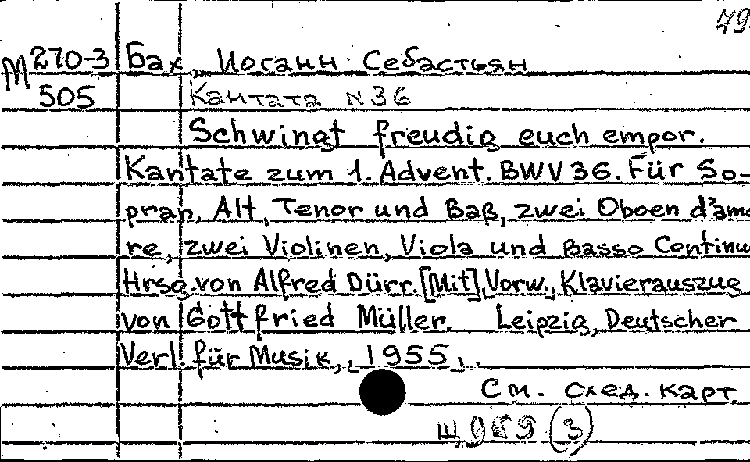 49
М 270-3 Бах, Иоганн Себастьян
505 Кантата N 36
Schwingt freudig euch empor.
Kantate zum 1. Advent. BWV 36. Für So-
pran, Alt, Tenor und Baß, zwei Oboen d'amo
re, zwei Violinen, Viola und Basso Continu
Hrsg. von Alfred Dürr. [Mit] Vorw., Klavierauszug
von Gottfried Müller. Leipzig, Deutscher
Verl. für Musik, 1955.
См. след. карт
(3)